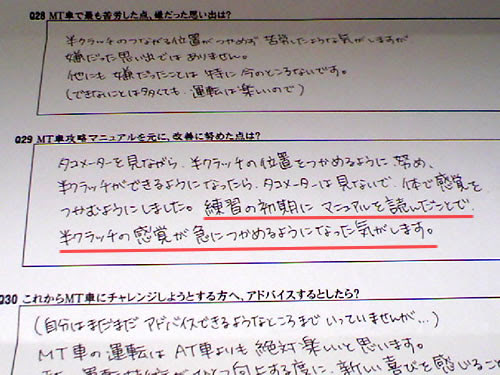 Q28 MT車で最も苦労した点、嫌だった思い出は?
半クラッチのつながる位置がつかめず 苦労したような気がしますが
嫌だった思い出ではありません。
他にも 嫌だったことは 特に 今のところないです。
(できないことは多くても、運転は楽しいので)
Q29 MT車攻略マニュアルを元に、改善に努めた点は?
タコメーターを見ながら、半クラッチの位置をつかめるように 努め、
半クラッチができるようになったら、タコメーターは見ないで、体で感覚を
つかむようにしました。練習の初期に マニュアルを読んだことで、
半クラッチの感覚が 急につかめるようになった気がします。
Q30 これからMT車にチャレンジしようとする方へ、アドバイスするとしたら?
(自分はまだまだ アドバイスできるようなところまで いっていませんが…)
MT車の運転は AT車よりも 絶対楽しいと思います。
運転技術がひとつ向上する度に、新しい喜びを感じること